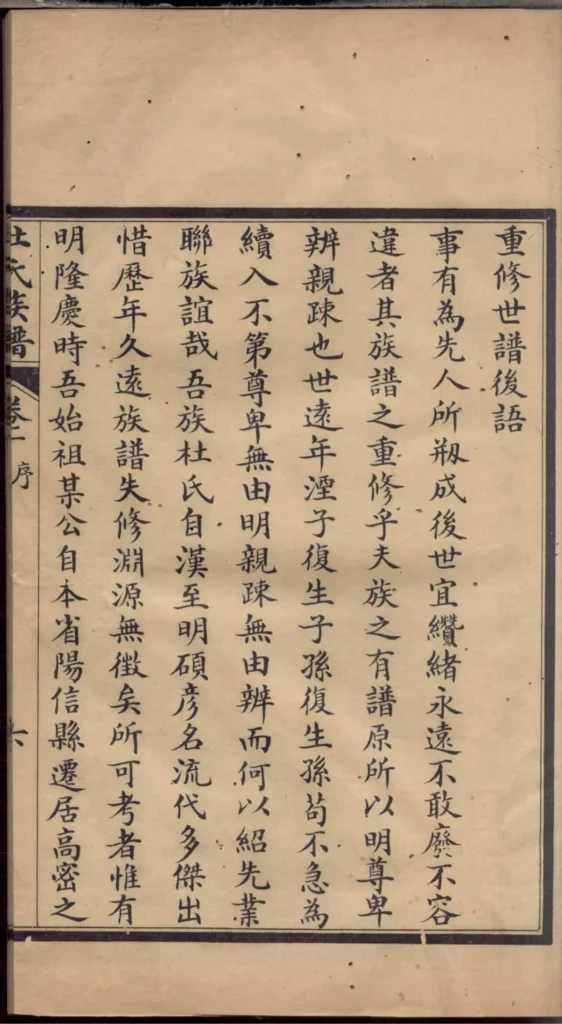 重修世譜後語
事有為先人所刱成後世宜纘緒永遠不敢廢不容
違者其族譜之重修乎夫族之有譜原所以明尊卑
辨親疎也世遠年湮子復生子孫復生孫苟不急為
續入不第尊卑無由明親疎無由辨而何以紹先業
聯族誼哉吾族杜氏自漢至明碩彥名流代多傑出
惜歷年久遠族譜失修淵源無徵矣所可考者惟有
明隆慶時吾始祖某公自本省陽信縣遷居高密之
杜氏族譜 卷一 序 六